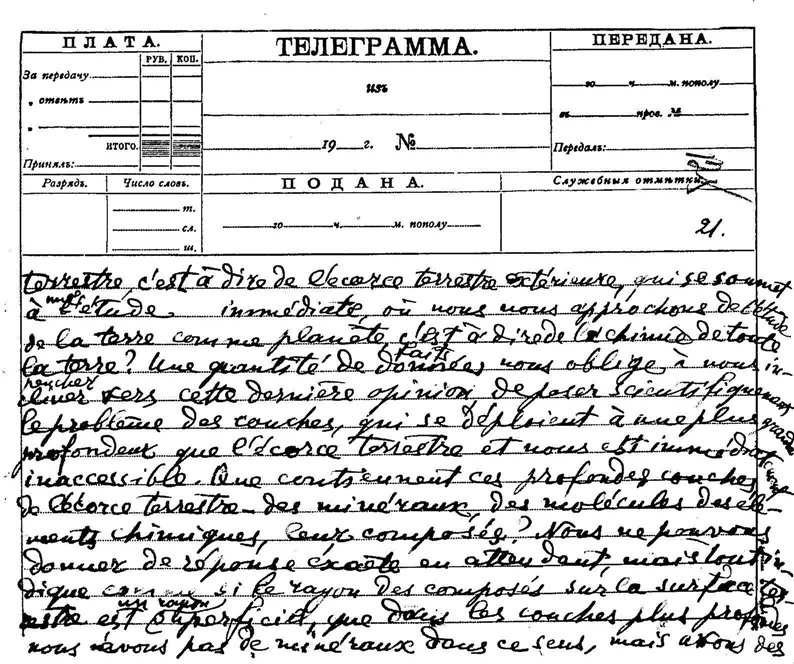 ПЛАТА.
РУБ. КОП.
За передачу
„ отвѣтъ
„
ИТОГО.
Принялъ:
ТЕЛЕГРАММА.
изъ
19 г. №
ПЕРЕДАНА.
го ч. м. пополу
въ пров. №
Передалъ:
Разрядъ.
Число словъ.
т.
сл.
ш.
ПОДАНА.
го ч. м. пополу
Служебныя отмѣтки.
21.
terrestre, c'est à dire de l'écorce terrestre extérieure, qui se soumet
à l'étude immédiate, où nous nous approchons de l'étude
de la terre comme planète, c'est à dire de la chimie de toute
la terre? Une quantité de faits données nous oblige à nous in-
cliner vers cette dernière opinion, de poser scientifiquement
le problème des couches, qui se déploient à une plus grande
profondeur que l'écorce terrestre et nous est immédiat
inaccessible. Que contiennent ces profondes couches
de l'écorce terrestre – des minéraux, des molécules des élé-
ments chimiques, leur composés? Nous ne pouvons
donner de réponse éxacte en attendant, mais tout in-
dique comme si le rayon des composés sur la surface ter-
un rayon
restre est superficiel, que dans les couches plus profondes
nous n'avons pas de minéraux dans ce sens, mais avons des